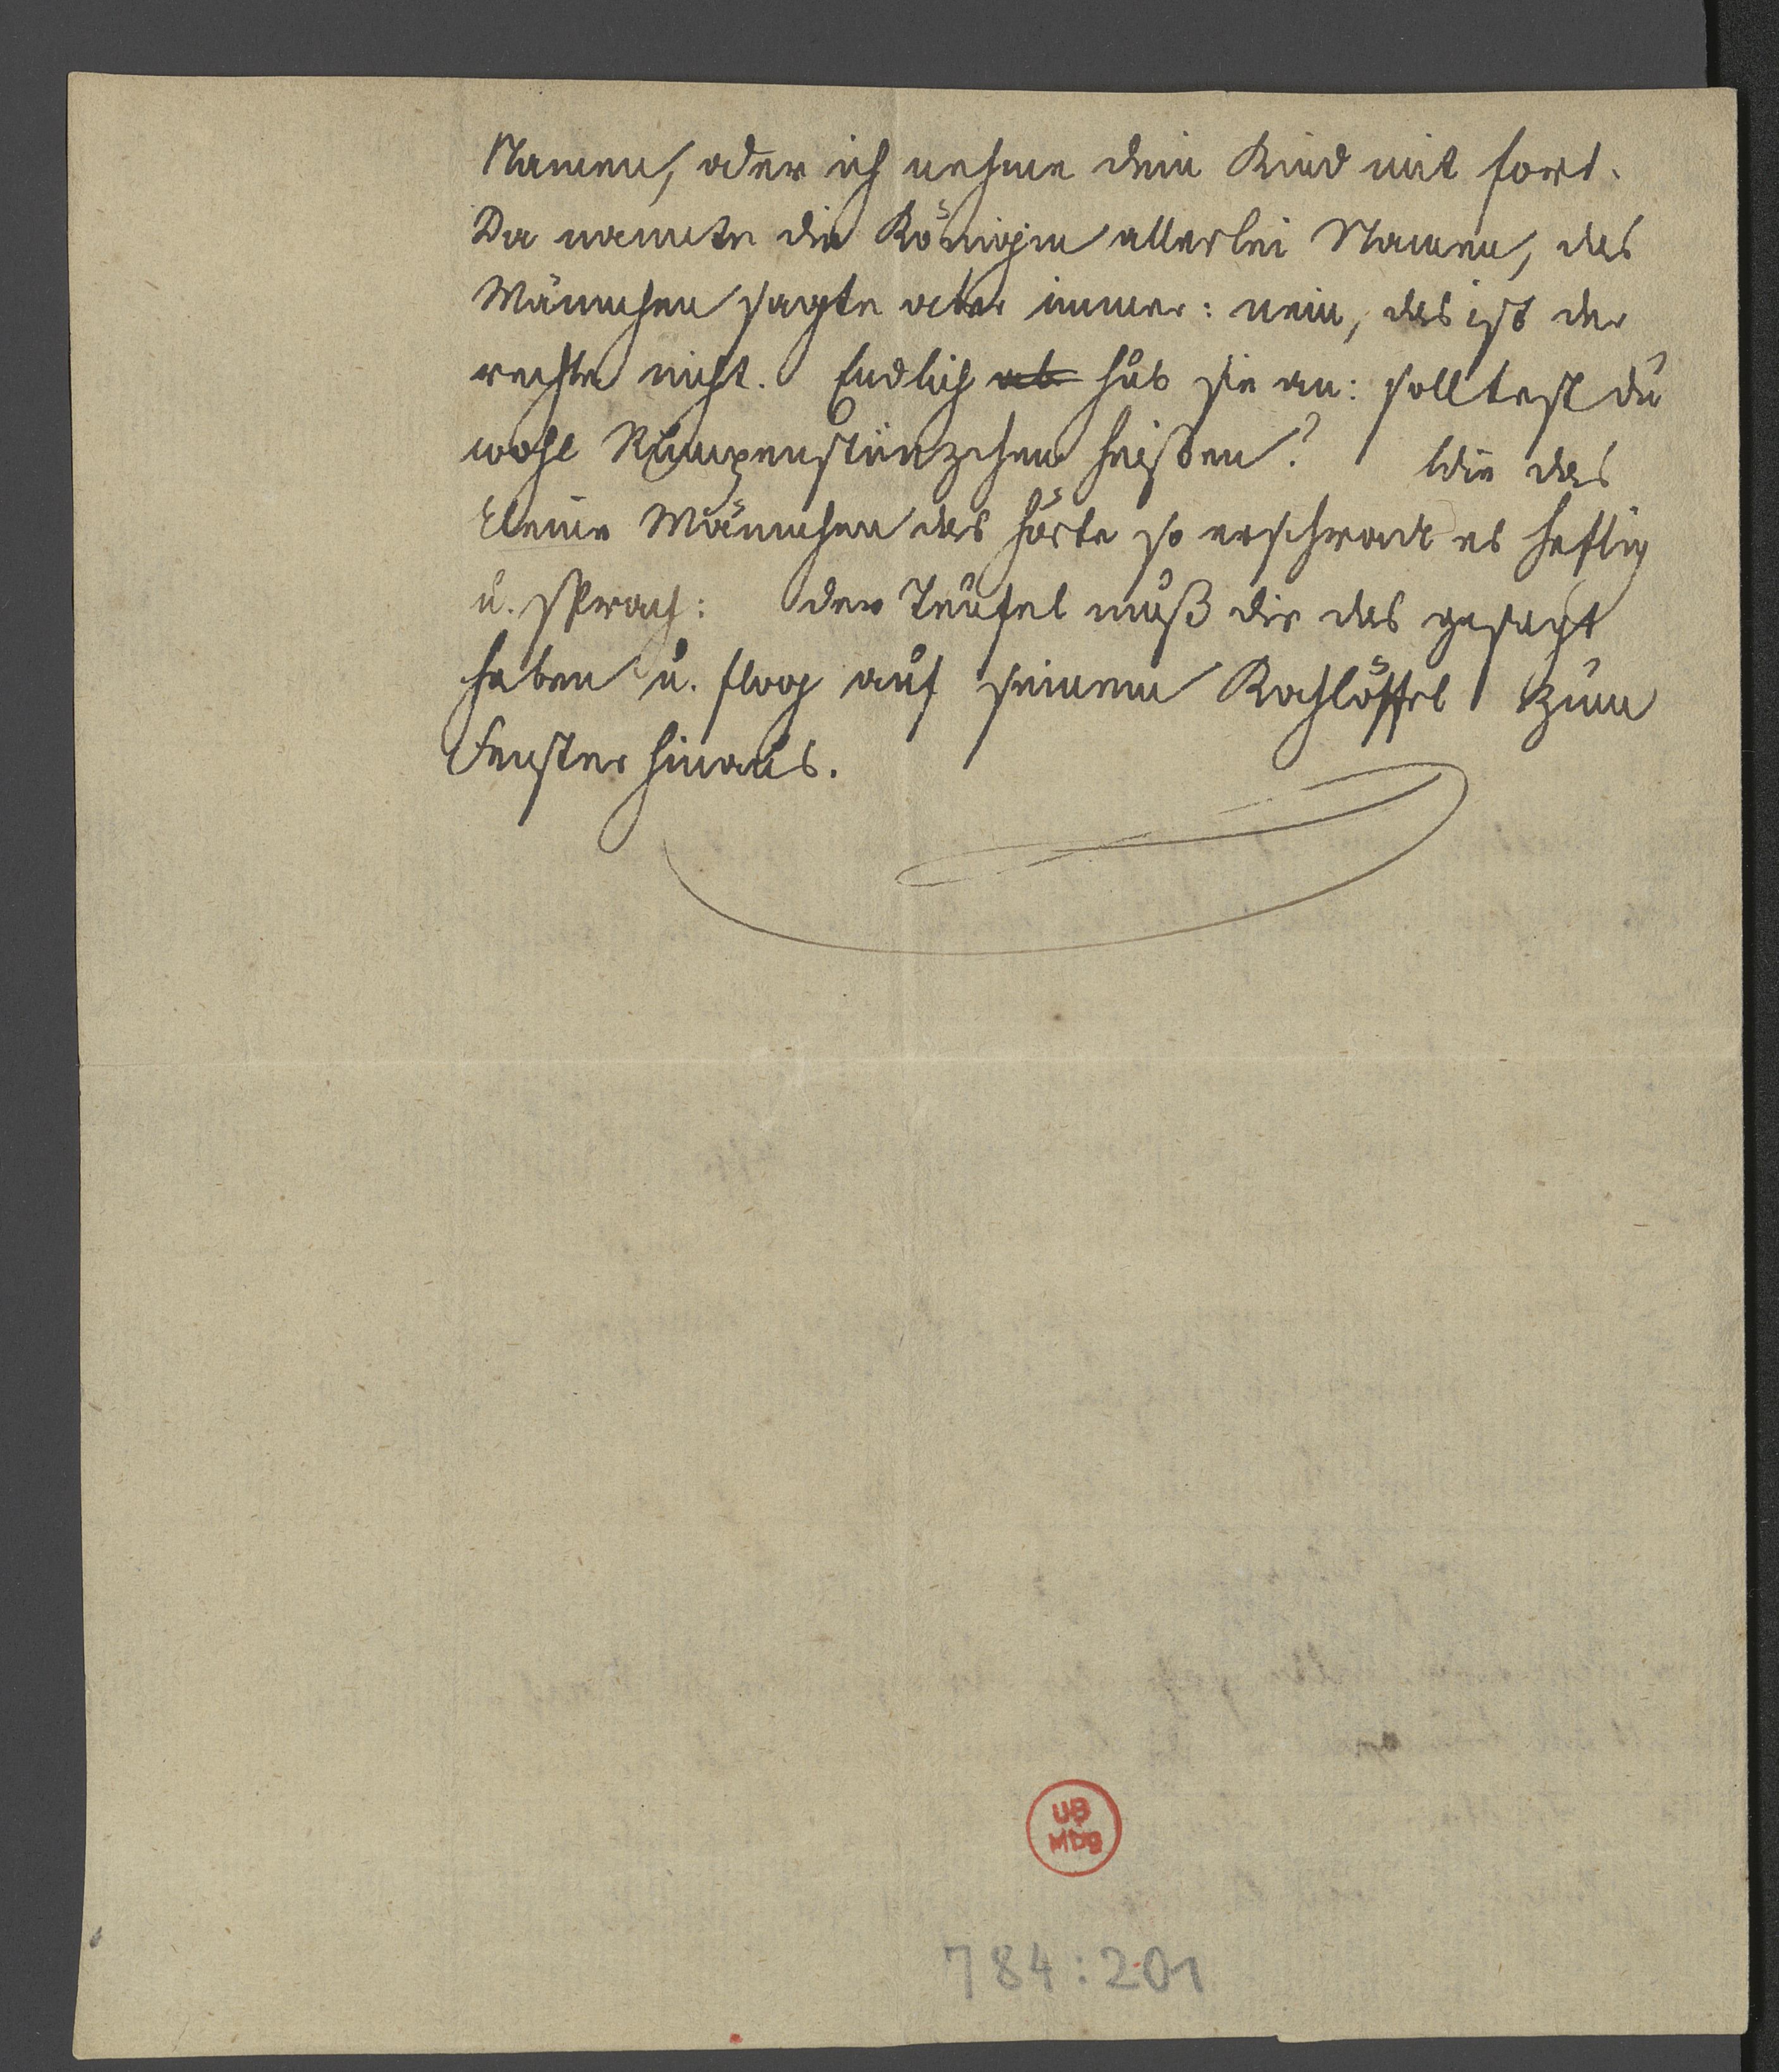 Namen, oder ich nehme dein Kind mit fort.
Da nannte die Königin allerlei Namen, das
Männchen sagte aber immer: nein, das ist der
rechte nicht. Endlich ab hub sie an: solltest du
wohl Rumpenstünzchen heißen? Wie das
kleine Männchen das hörte so erschrack es heftig
u. sprach: der Teufel muß dir das gesagt
haben u. flog auf seinem Kochlöffel zum
Fenster hinaus.
UB
Mbg
784:201